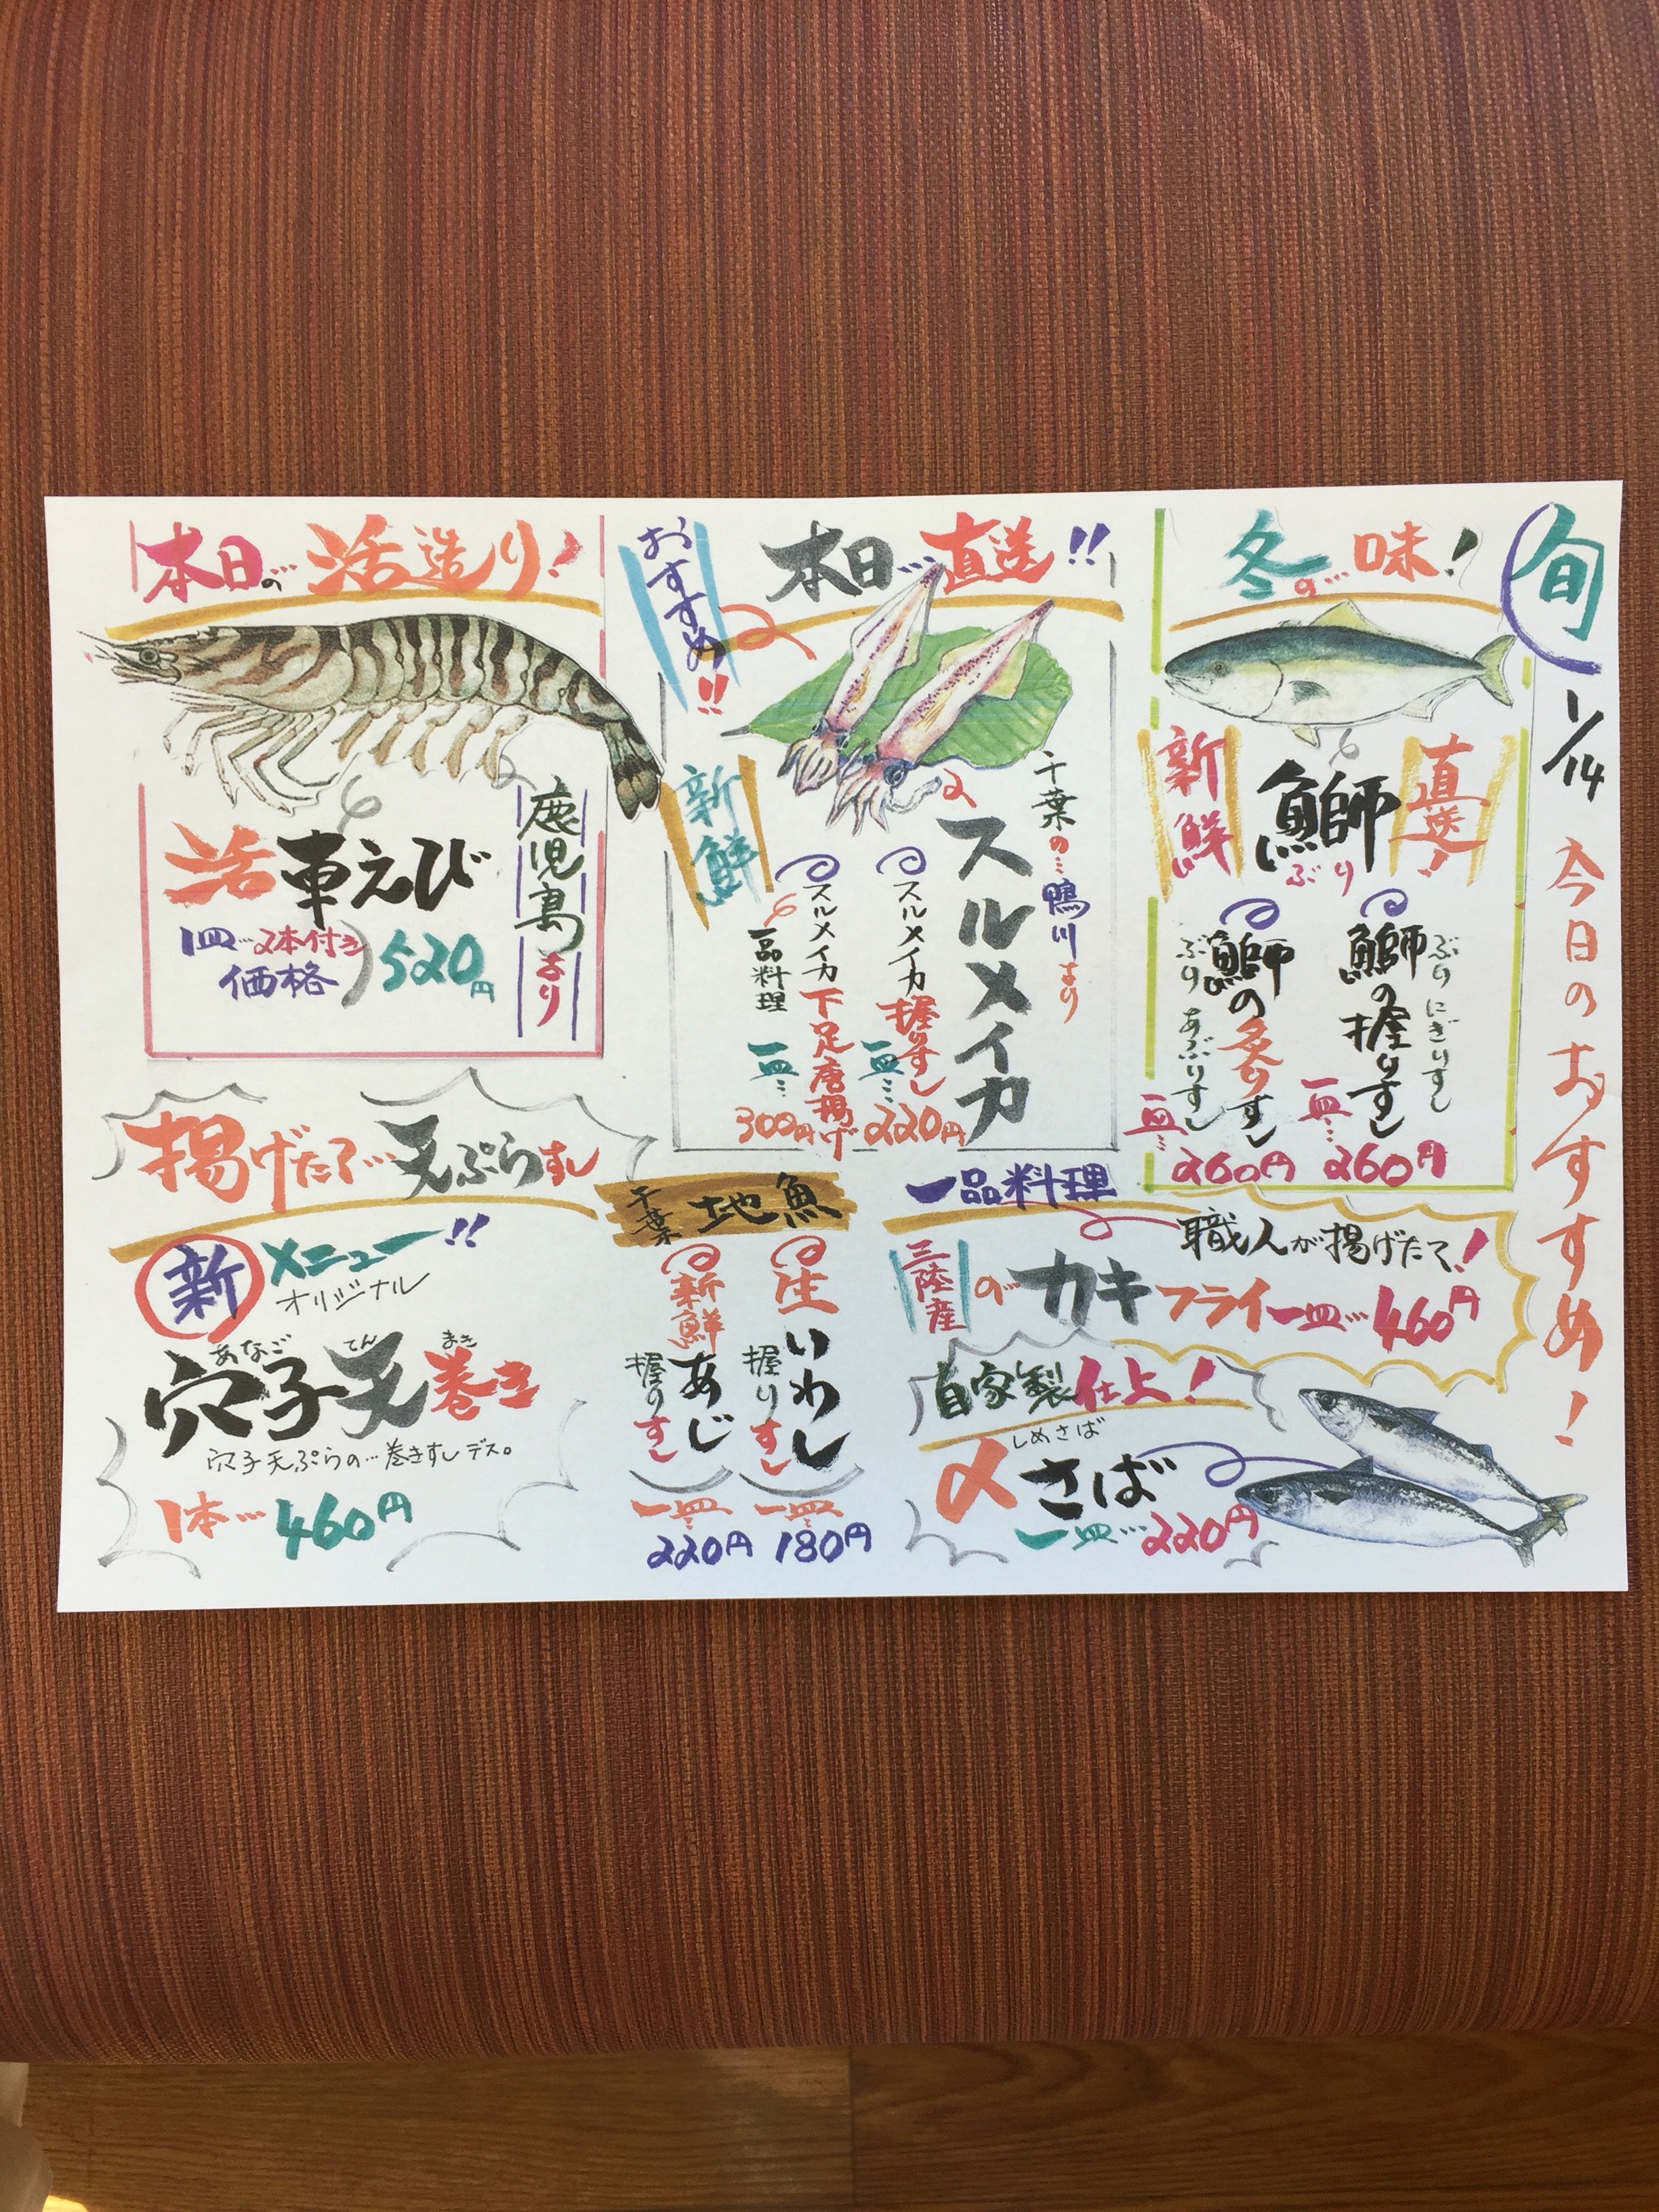 旬
1/14
今日のおすすめ!
冬の…味!
新鮮
鰤
ぶり
直送!
鰤の握りすし
ぶりにぎりすし
一皿…
260円
鰤の炙りすし
ぶりあぶりすし
一皿…
260円
おすすめ!!
本日…直送!!
新鮮
千葉の…鴨川より
スルメイカ
スルメイカ握りすし
一皿…
220円
スルメイカ下足唐揚げ
一品料理
一皿…
300円
本日の…活造り!
活車えび
鹿児島より
1皿…2本付き
価格
520円
一品料理
職人が揚げたて!
三陸産の…カキフライ一皿…460円
自家製仕上!
しめさば
〆さば
一皿…220円
千葉地魚
生いわし
握りすし
一皿
180円
新鮮あじ
握りすし
一皿
220円
揚げたて…天ぷらすし
新メニュー!!
オリジナル
あなごてんまき
穴子天巻き
穴子天ぷらの…巻きすしデス。
1本…460円